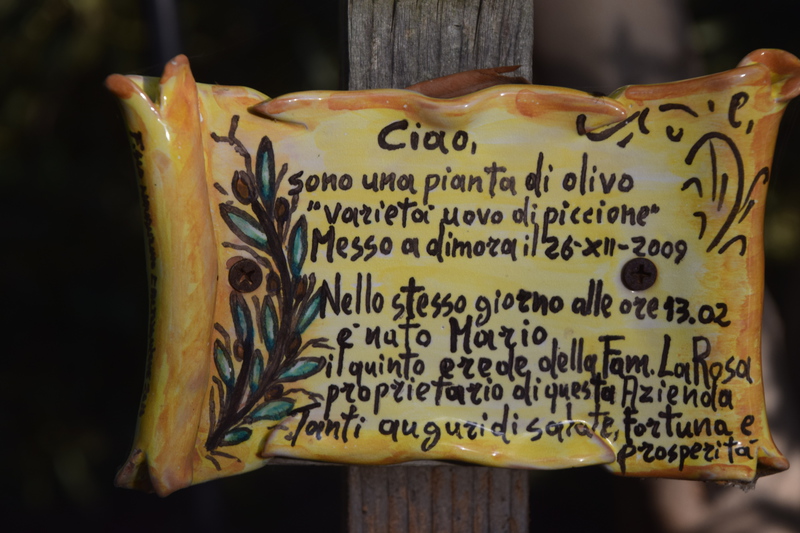 Ciao,
sono una pianta di olivo
"varietà uovo di piccione"
Messo a dimora il 26-XII-2009
Nello stesso giorno alle ore 13.02
è nato Mario
il quinto erede della Fam. La Rosa
proprietario di questa Azienda
Tanti auguri di salute, fortuna e
prosperità